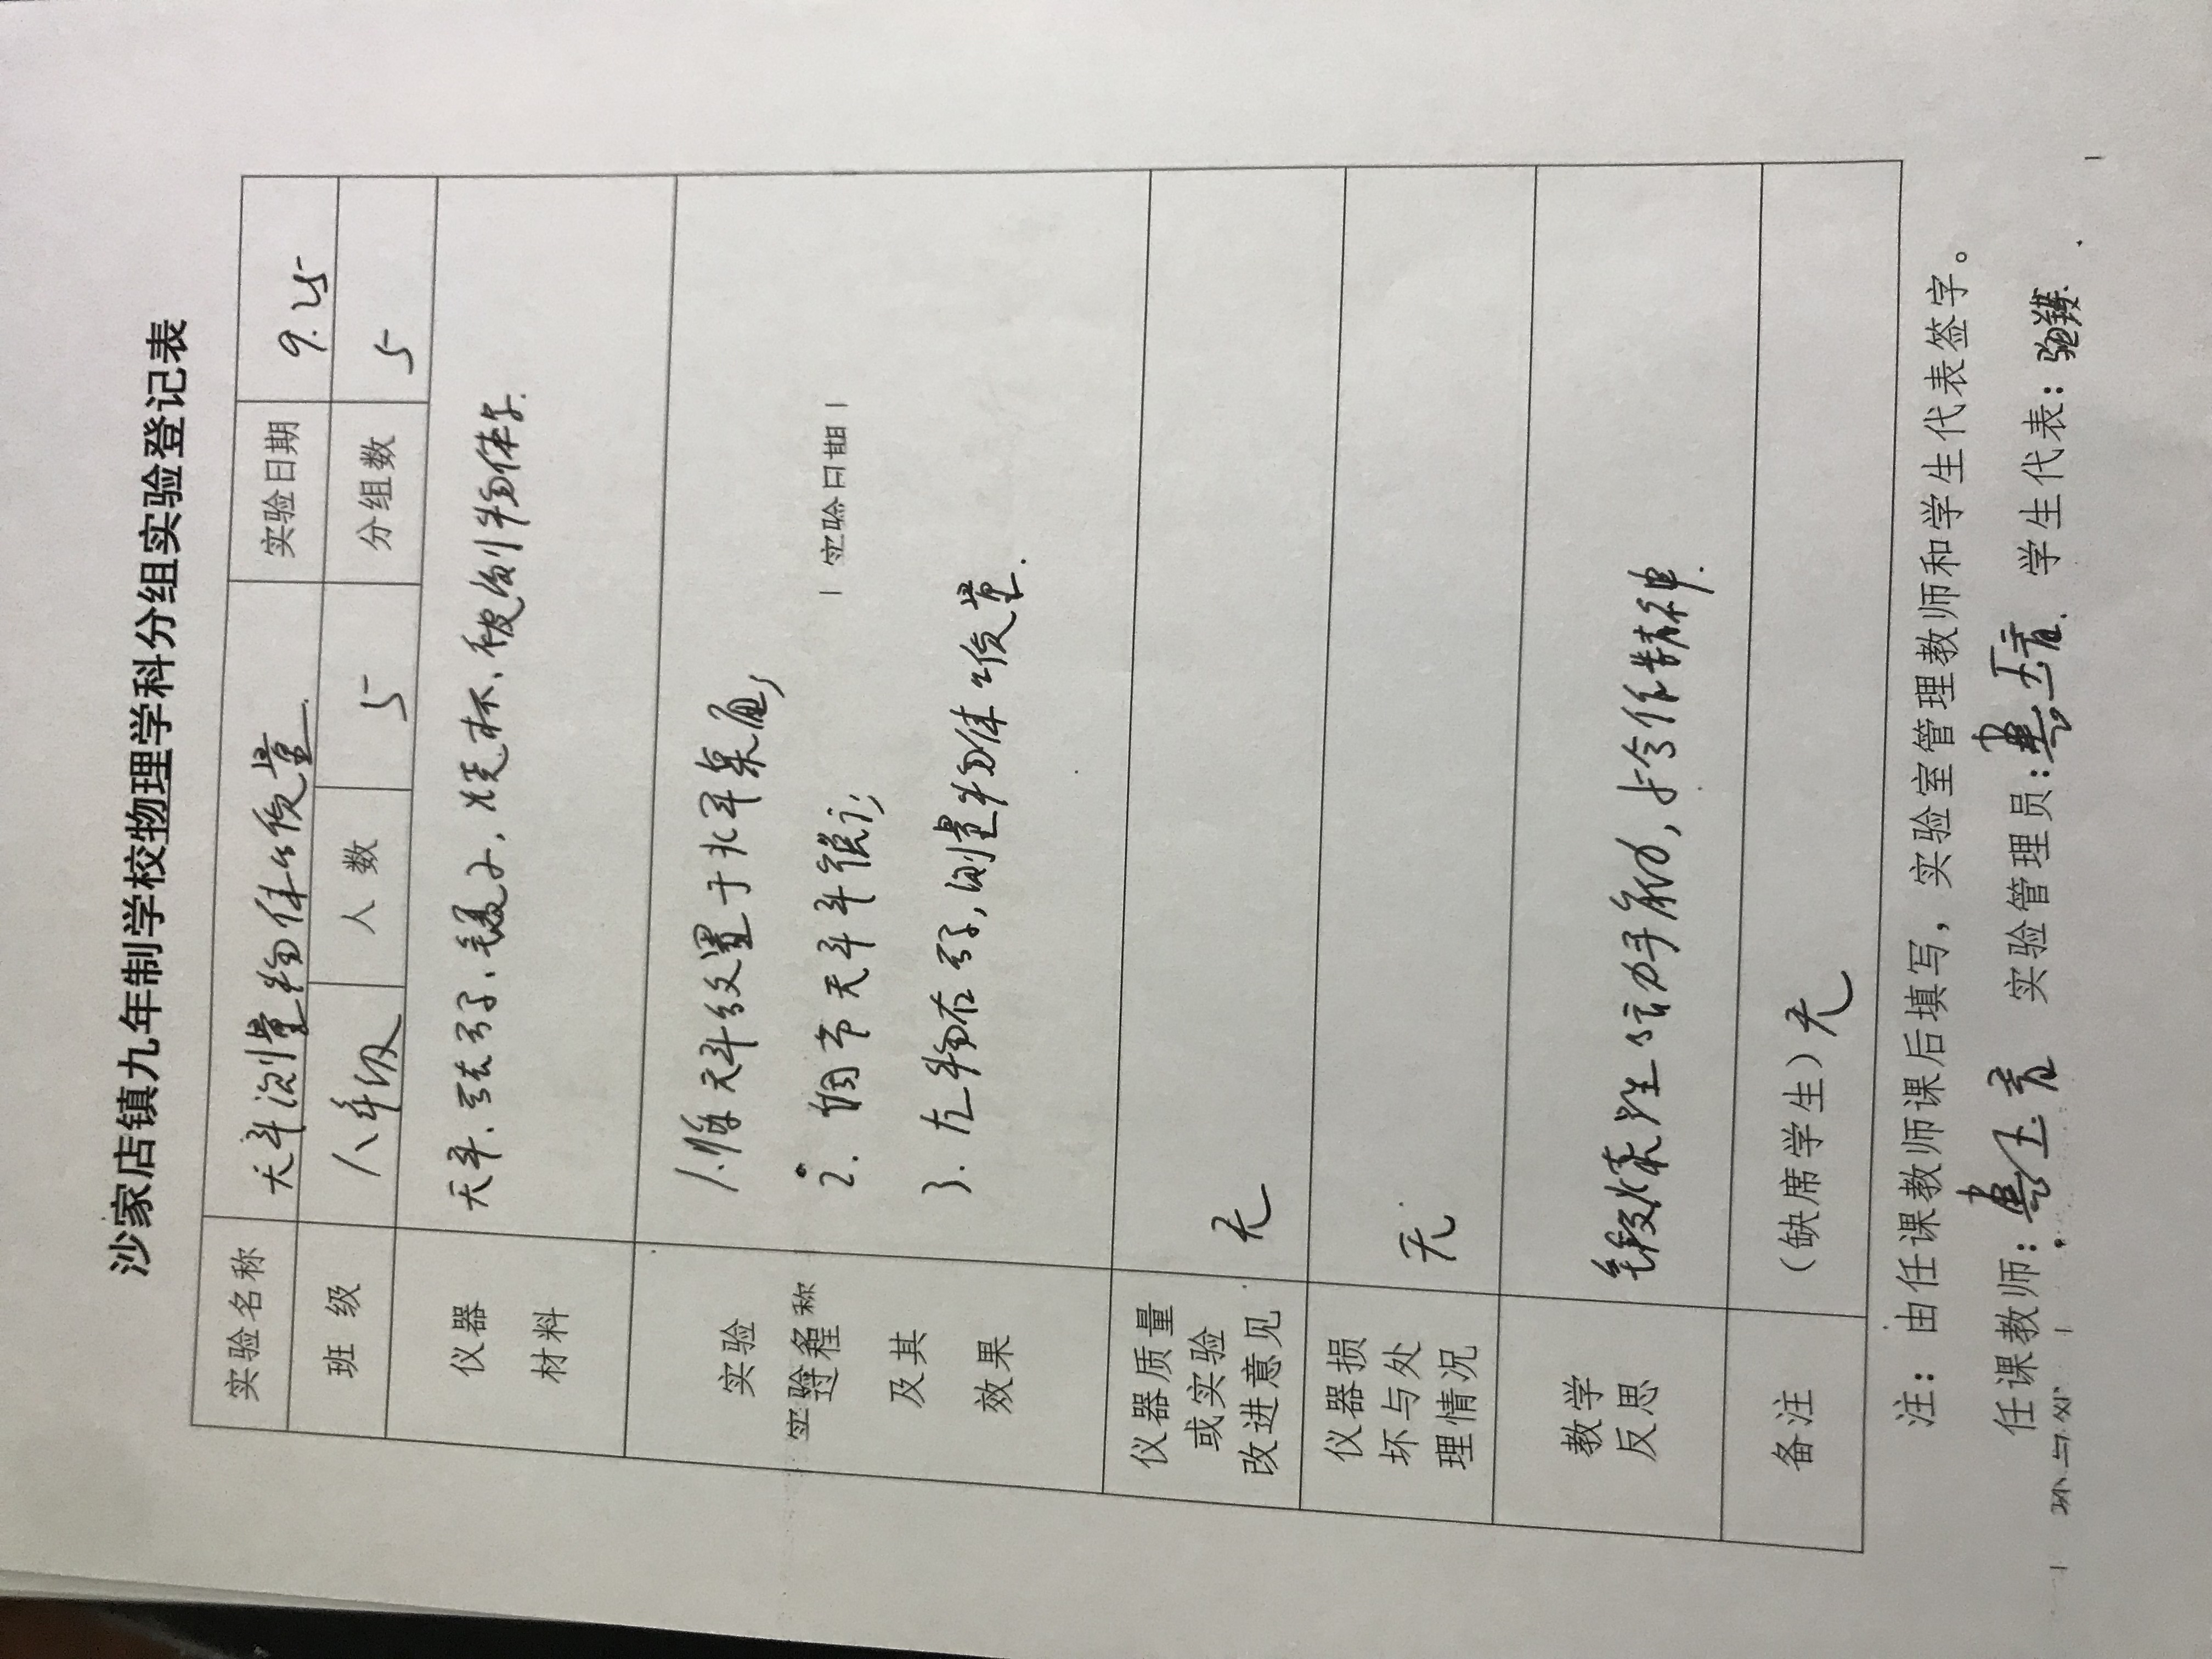 沙家店镇九年制学校物理学科分组实验登记表
实验名称 天平测量物体的质量. 实验日期 9.25
班 级 八年级 人 数 5 分组数 5
仪器 天平、砝码、镊子、烧杯、被测物体等.
材料
实验 1.将天平放置于水平桌面;
过程 2.调节天平平衡;
实验名称
实验日期
及其 3.左物右码,测量物体的质量.
效果
仪器质量 无
或实验
改进意见
仪器损 无
坏与处
理情况
教学 锻炼学生的动手能力,与合作精神.
反思
备注 (缺席学生)无
注:由任课教师课后填写,实验室管理教师和学生代表签字。
任课教师: 实验管理员: 学生代表:
坏与处